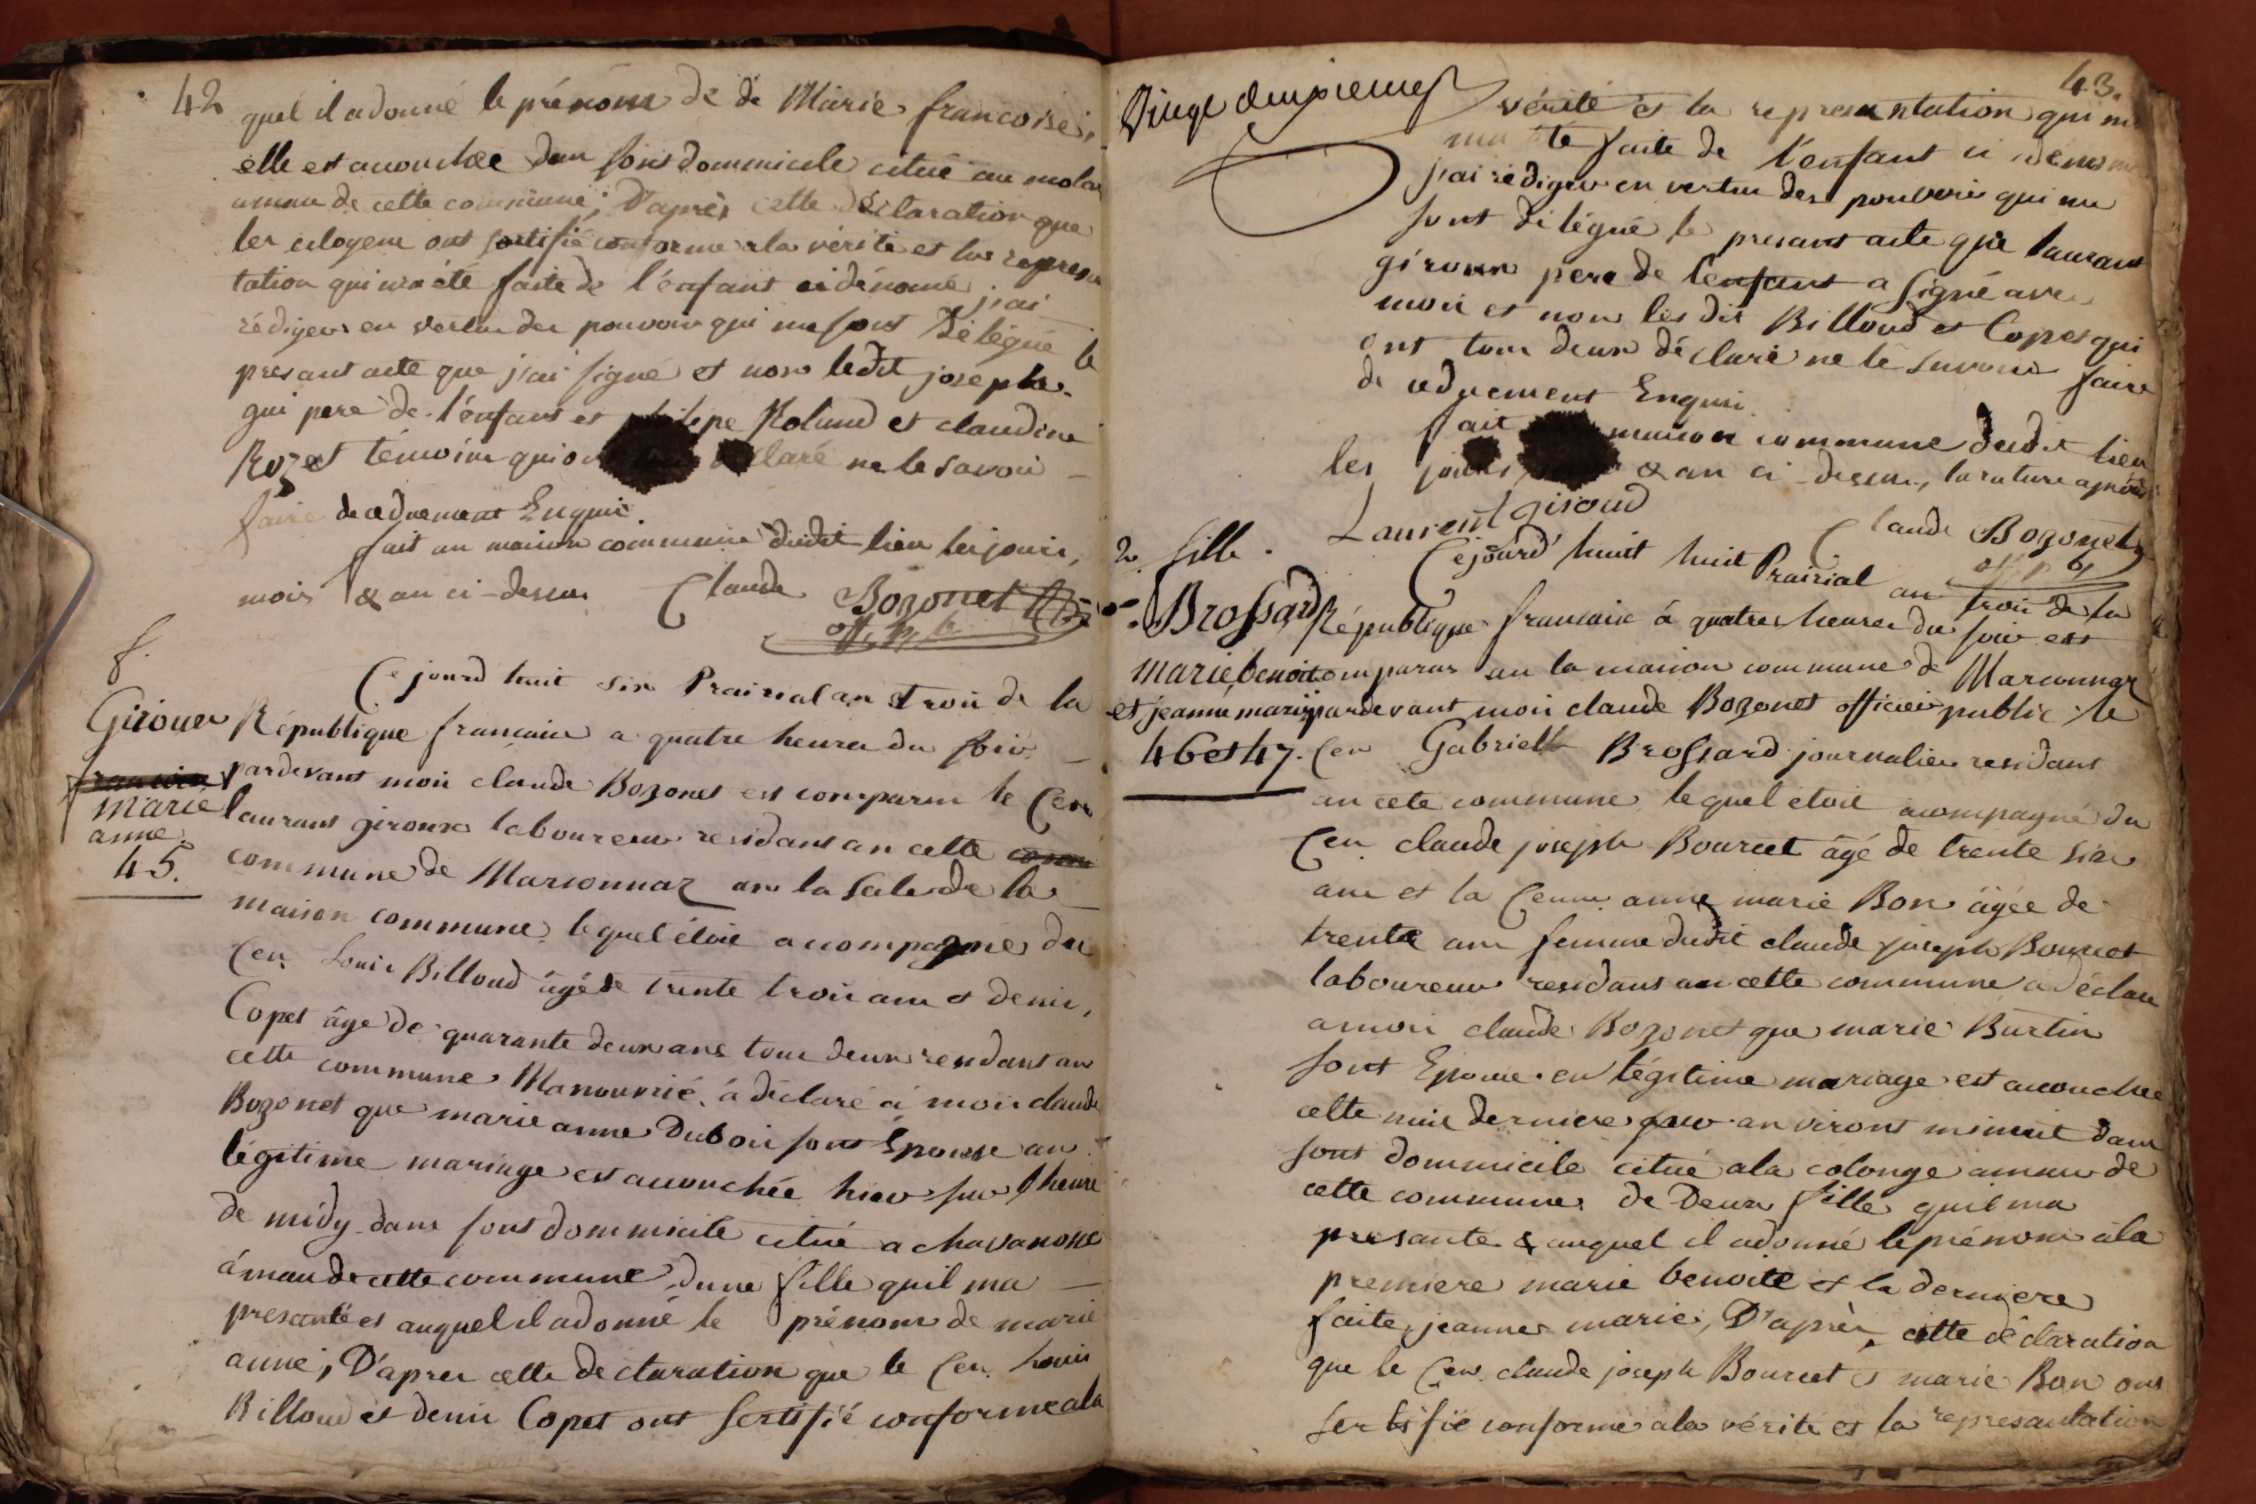 42
quel il adonné le prénom de de Marie francoise,
elle est acouchée dan sons dommicile citué au molar
amau de cette commune; D'après cette déclaration que
les citoyens ont sertifié conforme a la vérité et la represen
tation qui ma été faite de l'enfant ci dénomé j'ai
rédiger en vertu des pouvoir qui me sont Délégué le
presant acte que j'ai signé et non ledit joseph
gui pere de l'enfant et philipe Roland et claudine
Rozet témoins qui on déclaré ne le savoir
faire de ceduement Enquis
fait en maison commune dudit lieu les jours,
mois & an ci-dessus Claude Bozonet
off, p, b
f.
Girouer
marie
anne
45.
Cejourd huit six Prairial an trois de la
République francaise a quatre heures du soir
pardevant moii claude Bozonet est comparu le Cen
laurans giroux laboureur residant an cette
commune de Marsonnaz an la sale de la
maison commune, lequel étoit acompagné du
Cen Louis Billoud âgé de trente trois ans et denis,
Copet âgé de quarante deux ans tous deux residant an
cette commune Manouvrié, a déclaré à moii claude
Bozonet que marie anne Dubois sons Epouse an
légitime mariage est acouchée hier sur l'heure
de midy dans sons dommicile citué a chavanosse
âmau de cette commune, dune fille quil ma
presanté et auquel il adonné le prénom de marie
anne; D'aprer cette declaration que le Cen Louis
Billoud et denis Copet ont sertifié conforme ala
43.
Vingt deuxieme
vérité et la représentation qui m
ma été faite de l'enfant ci dénomé
j'ai rédiger en vertu des pouvoir qui me
sont délégué le presant acte que laurans
giroux pere de lenfant a signé avec
moii et non les dit Billoud et Copet qui
ont tous deux déclaré ne le savoir faire
de ceduement Enquis
fait maison commune dudit lieu
les jours, & an ci-dessus, la rature aprouvé
Laurent giroud
Claude Bozonet
off p b
2 fille.
Brossard
marie, benoit
et jeanne marie
46 et 47.
Cejourd' huit huit Prairial an trois de la
République francaise à quatres heures du soir est
comparus an la maison commune de Marsonnaz
pardevant moii claude Bozonet officier public le
Cen Gabriell Brossard journalier residant
an cete commune, lequel étoit acompagné du
Cen claude joseph Bourcet âgé de trente six
ans et la Cenne anne marie Bon âgée de
trente ans femme dudit claude joseph Bourcet
laboureur residant an cette commune a déclaré
a moii claude Bozonet que marie Burtin
sont Epouse en légitime mariage est acouchée
cette nuit derniere sur anviront minuit dans
sons dommicile citué a la colonge amau de
cette commune de Deux fille quil ma
presanté & auquel il adonné le prénom à la
premiere marie benoite et la derniere
faite, jeanne marie, D'après cette déclaration
que le Cen claude joseph Bourcet et marie Bon ons
sertifié conforme a la vérité et la représantation